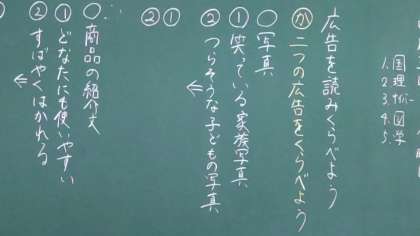 1.国
2.理
3.
4.図
5.学
広告を読みくらべよう
か 二つの広告をくらべよう
○写真
①笑っている家族写真
②つらそうな子どもの写真
⇐
①
②
○
商品の紹介文
①どなたにも使いやすい
②すばやくはかれる
⇐